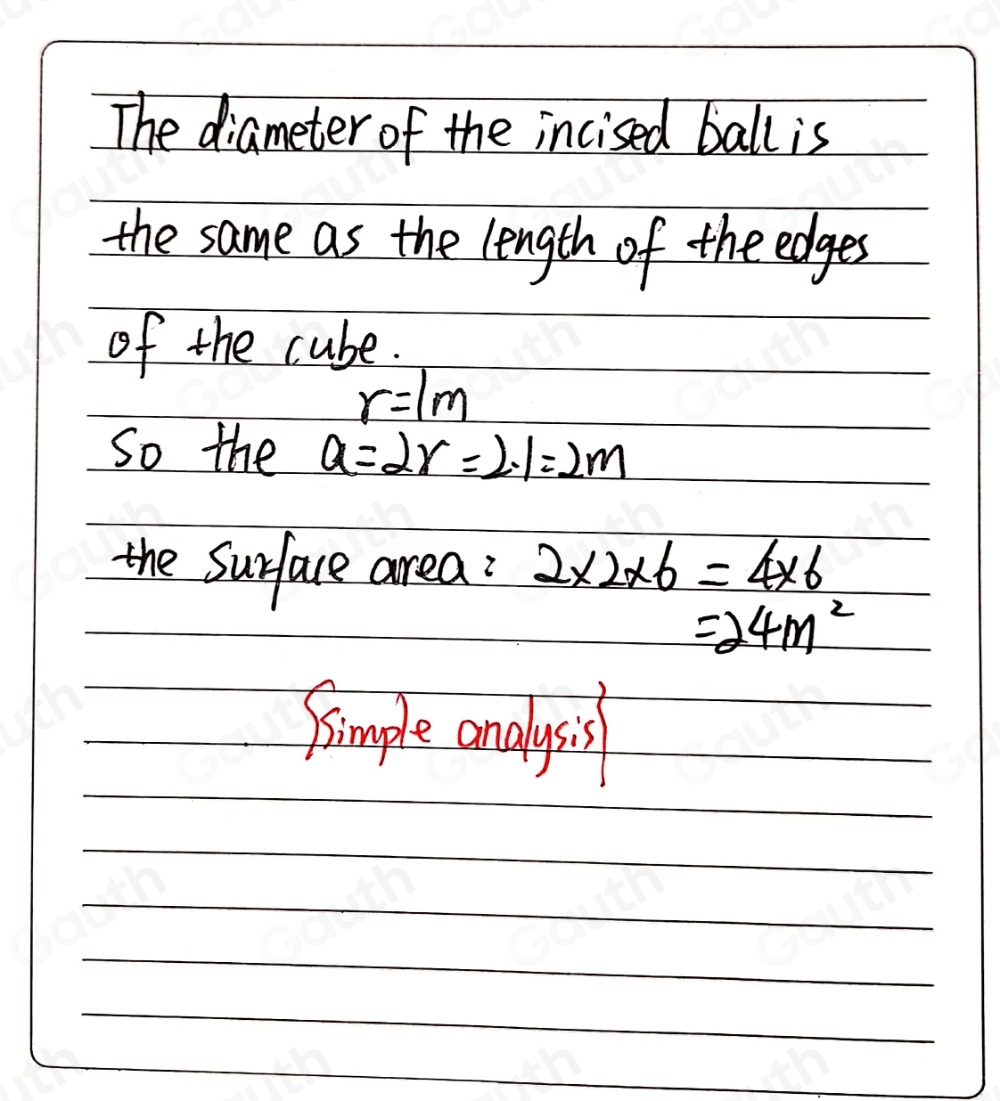 The diameter of the incised ball is
the same as the length of the edges
of the cube.
r=1m
So the a=2r=2·1=2m
the surface area: 2×2×6 = 4×6
=24m²
{simple analysis}